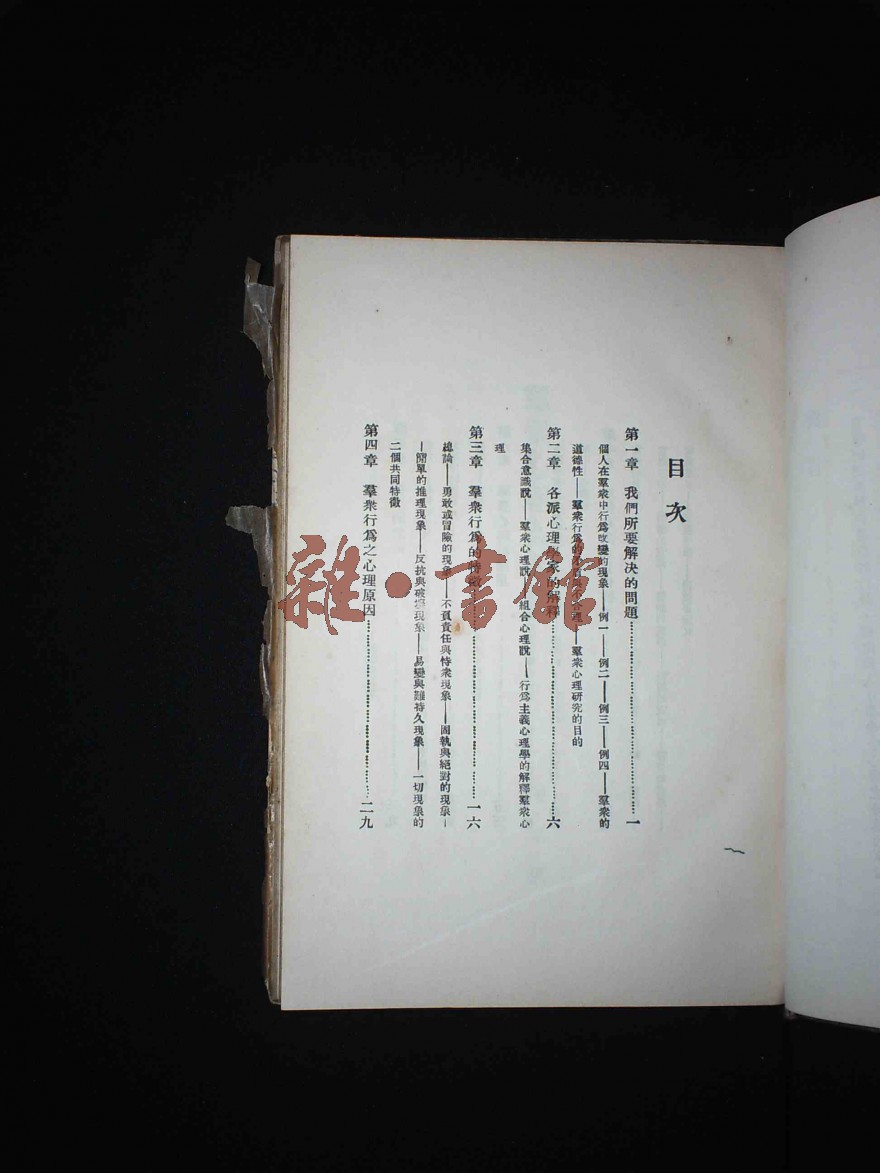 目次
第一章 我們所要解決的問題 一
個人在羣衆中行爲改變的現象——例一——例二——例三——例四——羣衆的
道德性——羣衆行爲的 不合理 羣衆心理研究的目的
第二章 各派心理學家的解釋 六
集合意識說——羣衆心理說——組合心理說——行爲主義心理學的解釋羣衆心
理
第三章 羣衆行爲的特徵 一六
總論——勇敢或冒險的現象——不負責任與恃衆現象——固執與絕對的現象—
—簡單的推理現象——反抗與破壞現象——易變與難持久現象——一切現象的
二個共同特徵
第四章 羣衆行爲之心理原因 二九
雜·書館